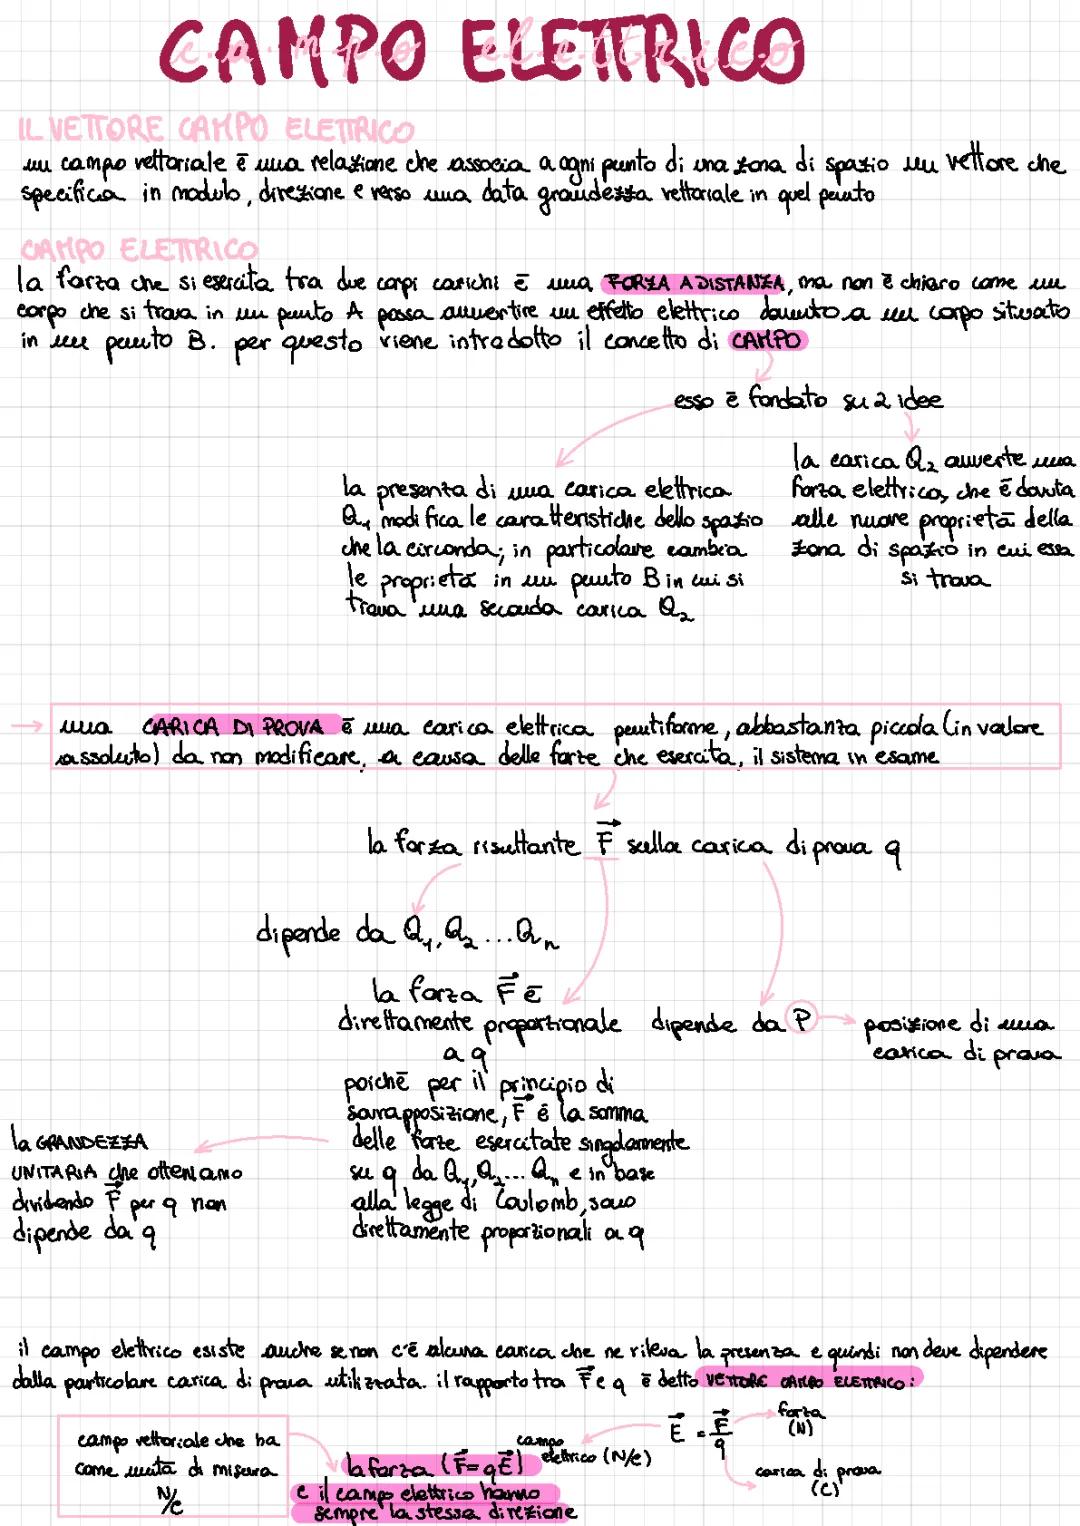 CAMPO ELETTRICO
campo elettrico
IL VETTORE CAMPO ELETTRICO
un campo vettoriale è una relazione che associa a ogni punto di una zona di spazio un vettore che
specifica in modulo, direzione e verso una data grandezza vettoriale in quel punto
CAMPO ELETTRICO
la forza che si esercita tra due corpi carichi è una FORZA A DISTANZA, ma non è chiaro come un
corpo che si trova in un punto A possa avvertire un effetto elettrico dovuto a un corpo situato
in un punto B. per questo viene introdotto il concetto di CAMPO
esso è fondato su 2 idee
la presenza di una carica elettrica
Q₁ modifica le caratteristiche dello spazio
che la circonda; in particolare cambia
le proprietà in un punto B in cui si
trova una seconda carica Q₂
la carica Q₂ avverte una
forza elettrica, che è dovuta
alle nuove proprietà della
zona di spazio in cui essa
si trova
→ una CARICA DI PROVA è una carica elettrica puntiforme, abbastanza piccola (in valore
assoluto) da non modificare, a causa delle forze che esercita, il sistema in esame
la forza risultante F⃗ sulla carica di prova q
dipende da Q₁, Q₂ ... Qₙ
la forza F⃗ è
direttamente proporzionale
a q
poiché per il principio di
sovrapposizione, F⃗ è la somma
delle forze esercitate singolarmente
su q da Q₁, Q₂... Qₙ e in base
alla legge di Coulomb, sono
direttamente proporzionali a q
dipende da P → posizione di una
carica di prova
la GRANDEZZA
UNITARIA che otteniamo
dividendo F⃗ per q non
dipende da q
il campo elettrico esiste anche se non c'è alcuna carica che ne rileva la presenza e quindi non deve dipendere
dalla particolare carica di prova utilizzata. il rapporto tra F⃗ e q è detto VETTORE CAMPO ELETTRICO:
E⃗ = F⃗/q
forza
(N)
carica di prova
(C)
campo
elettrico (N/C)
campo vettoriale che ha
come unità di misura
N/C
la forza (F⃗=qE⃗)
e il campo elettrico hanno
sempre la stessa direzione